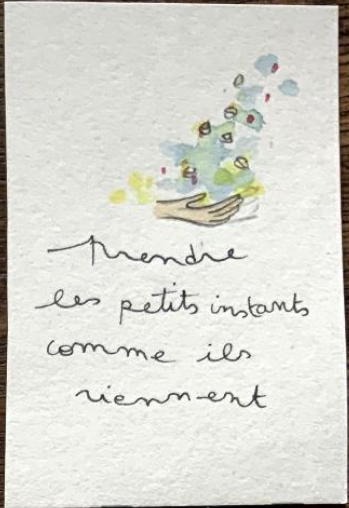 prendre
les petits instants
comme ils
viennent